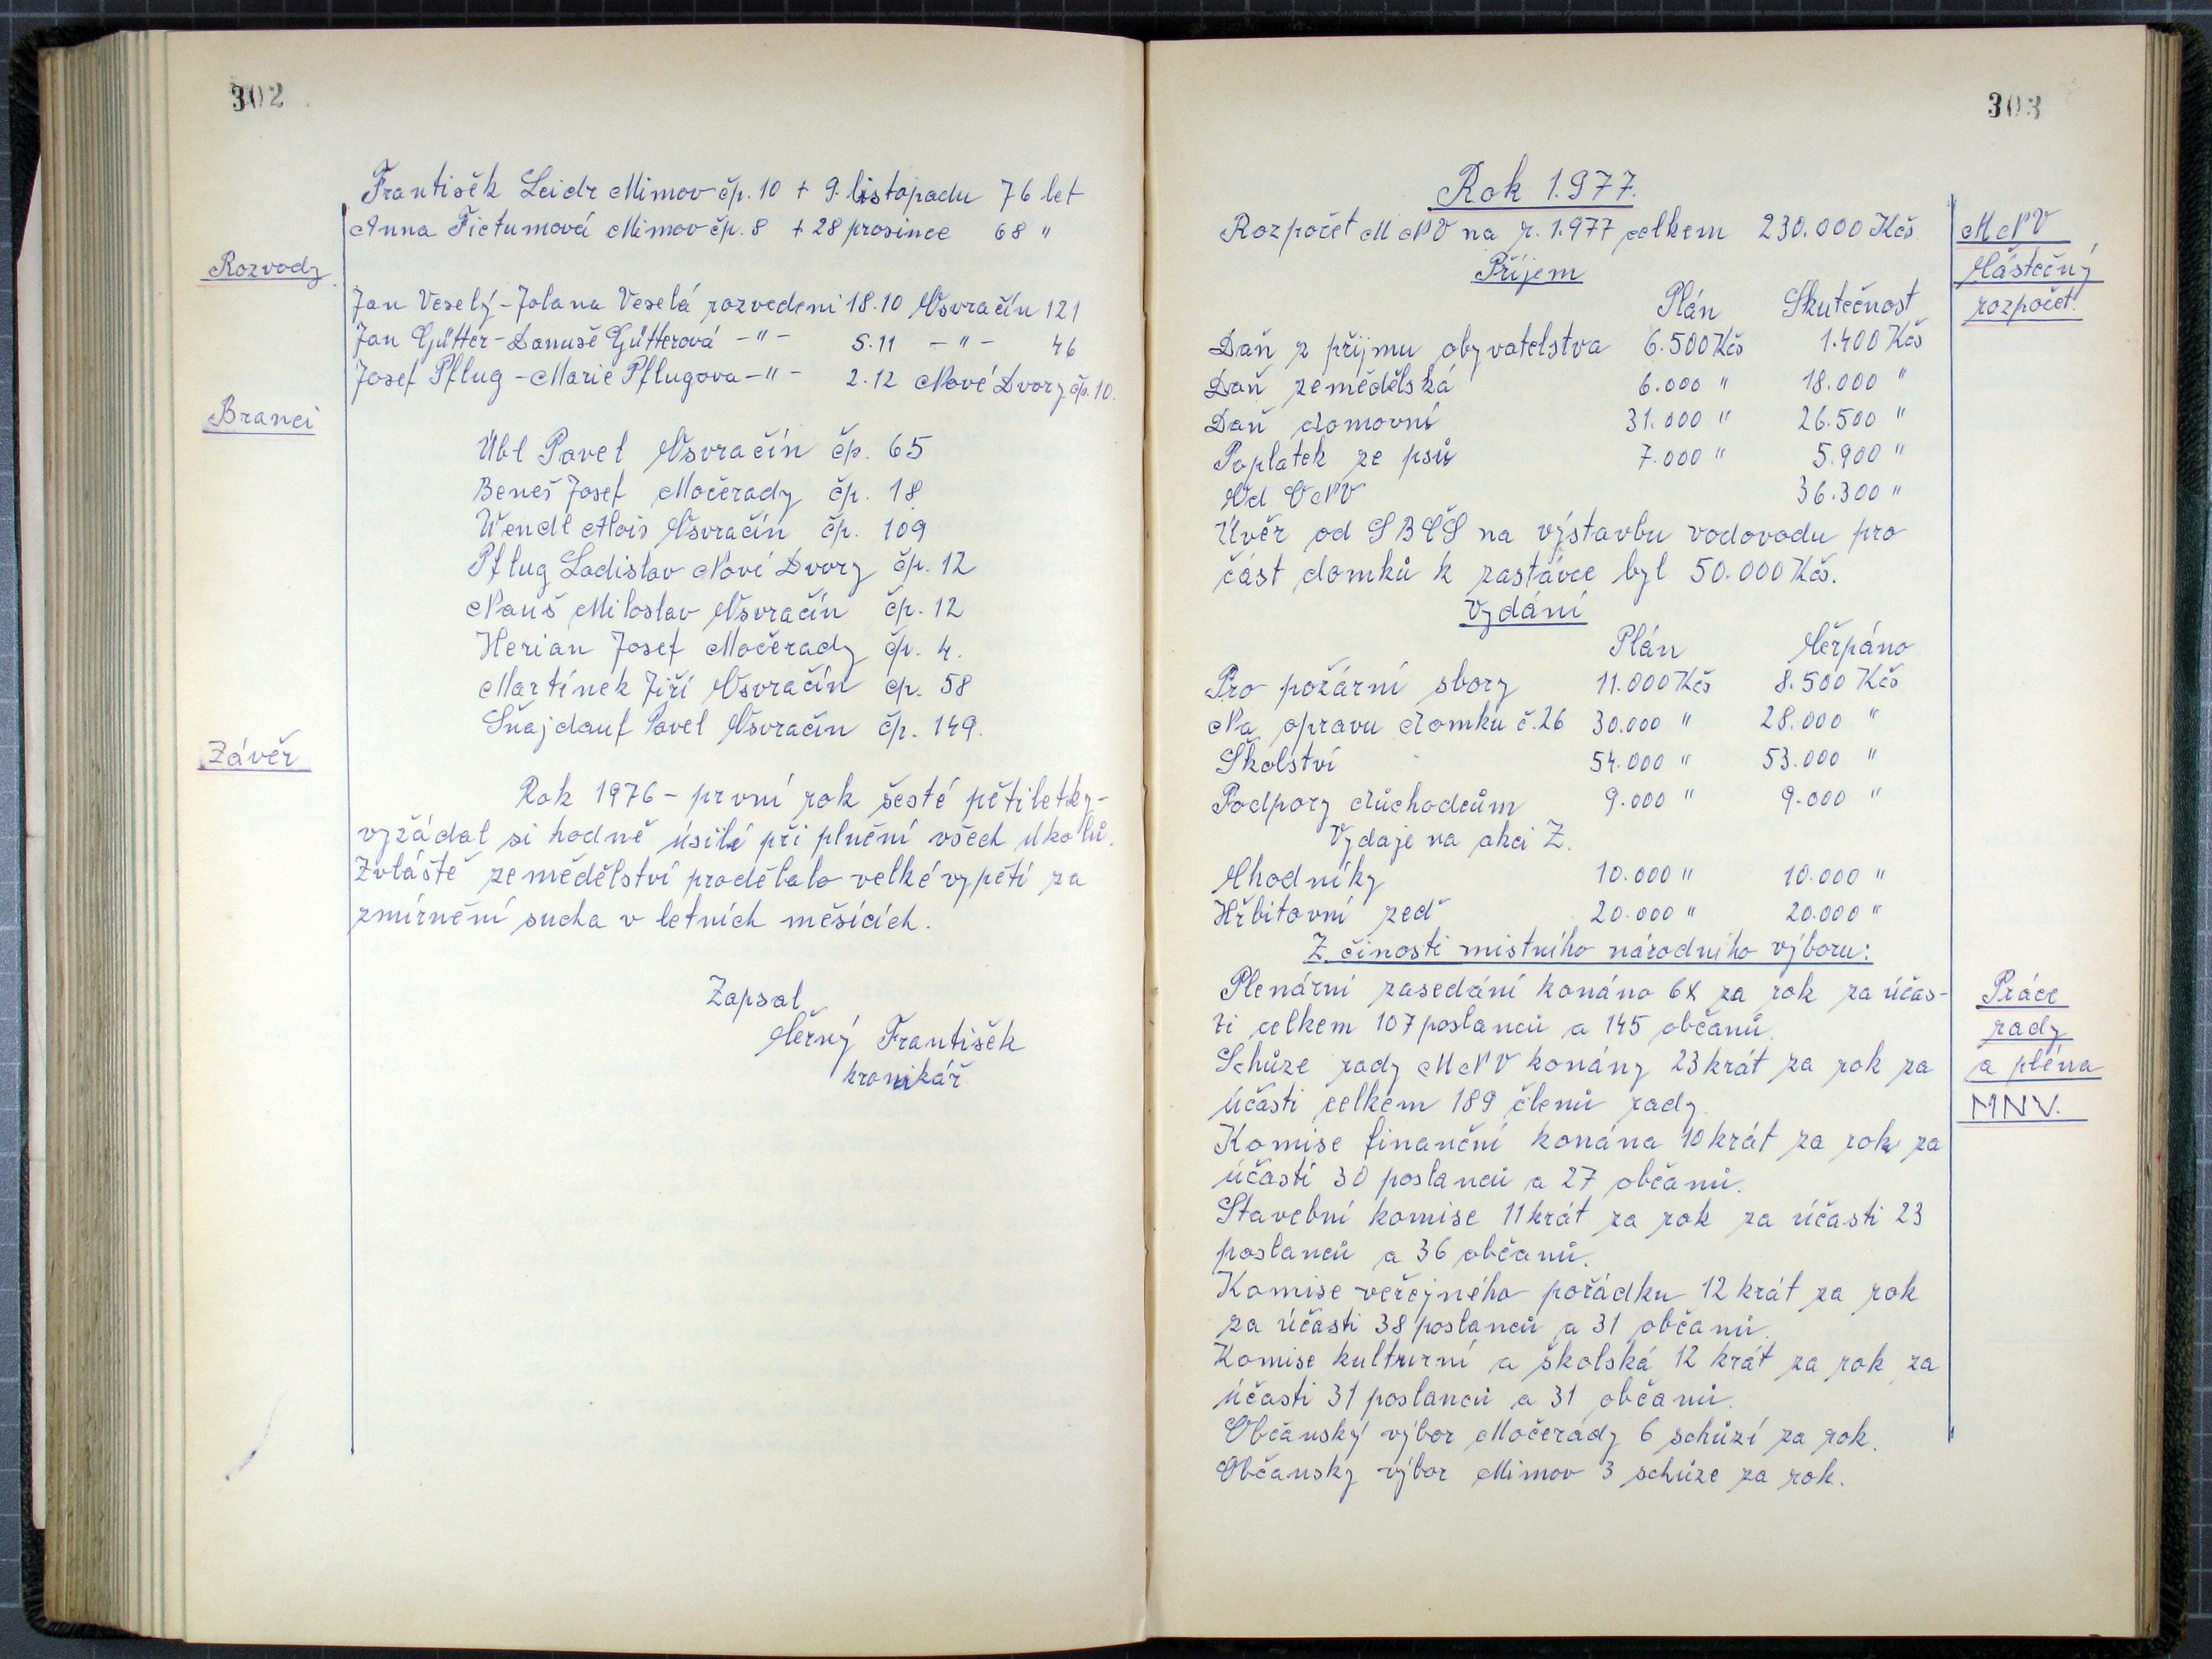 302
František Leidr Mimov čp. 10 + 9. listopadu 76 let
Anna Fictumová Mimov čp. 8 + 28 prosince 68 "
Rozvody
Jan Veselý - Jolana Veselá rozvedeni 18.10 Osvračín 121
Jan Gütter - Danuše Gütterová - " - 5.11 - " - 46
Josef Pflug - Marie Pflugova - " - 2.12 Nové Dvory čp. 10.
Branci
Übl Pavel Osvračín čp. 65
Beneš Josef Močerady čp. 18
Wendl Alois Osvračín čp. 109
Pflug Ladislav Nové Dvory čp. 12
Nauš Miloslav Osvračín čp. 12
Herian Josef Močerady čp. 4.
Martínek Jiří Osvračín čp. 58
Šnajdauf Pavel Osvračín čp. 149.
Závěr
Rok 1976 - první rok šesté pětiletky -
vyžádal si hodně úsilí při plnění všech úkolů.
Zvláště zemědělství prodělalo velké vypětí za
zmírnění sucha v letních měsících.
Zapsal
Černý František
kronikář
303
Rok 1.977.
Rozpočet MNV na r. 1.977 celkem 230.000 Kčs
MNV
Částečný
rozpočet.
Příjem
Plán Skutečnost
Daň z příjmu obyvatelstva 6.500 Kčs 1.400 Kčs
Daň zemědělská 6.000 " 18.000 "
Daň domovní 31.000 " 26.500 "
Poplatek ze psů 7.000 " 5.900 "
Od ONV 36.300 "
Úvěr od SBČS na výstavbu vodovodu pro
část domků k zastávce byl 50.000 Kčs.
Vydání
Plán Čerpáno
Pro požární sbory 11.000 Kčs 8.500 Kčs
Na opravu domku č. 26 30.000 " 28.000 "
Školství 54.000 " 53.000 "
Podpory důchodcům 9.000 " 9.000 "
Vydaje na akci Z.
Chodníky 10.000 " 10.000 "
Hřbitovní zeď 20.000 " 20.000 "
Z činosti mistního národního výboru:
Práce
rady
a pléna
MNV.
Plenární zasedání konáno 6x za rok za účas-
ti celkem 107 poslanců a 145 občanů.
Schůze rady MNV konány 23 krát za rok za
účasti celkem 189 členů rady.
Komise finanční konána 10 krát za rok za
účasti 30 poslanců a 27 občanů.
Stavební komise 11 krát za rok za účasti 23
poslanců a 36 občanů.
Komise veřejného pořádku 12 krát za rok
za účasti 38 poslanců a 31 občanů.
Komise kulturní a školská 12 krát za rok za
účasti 31 poslanců a 31 občanů.
Občanský výbor Močerady 6 schůzí za rok.
Občansky výbor Mimov 3 schůze za rok.